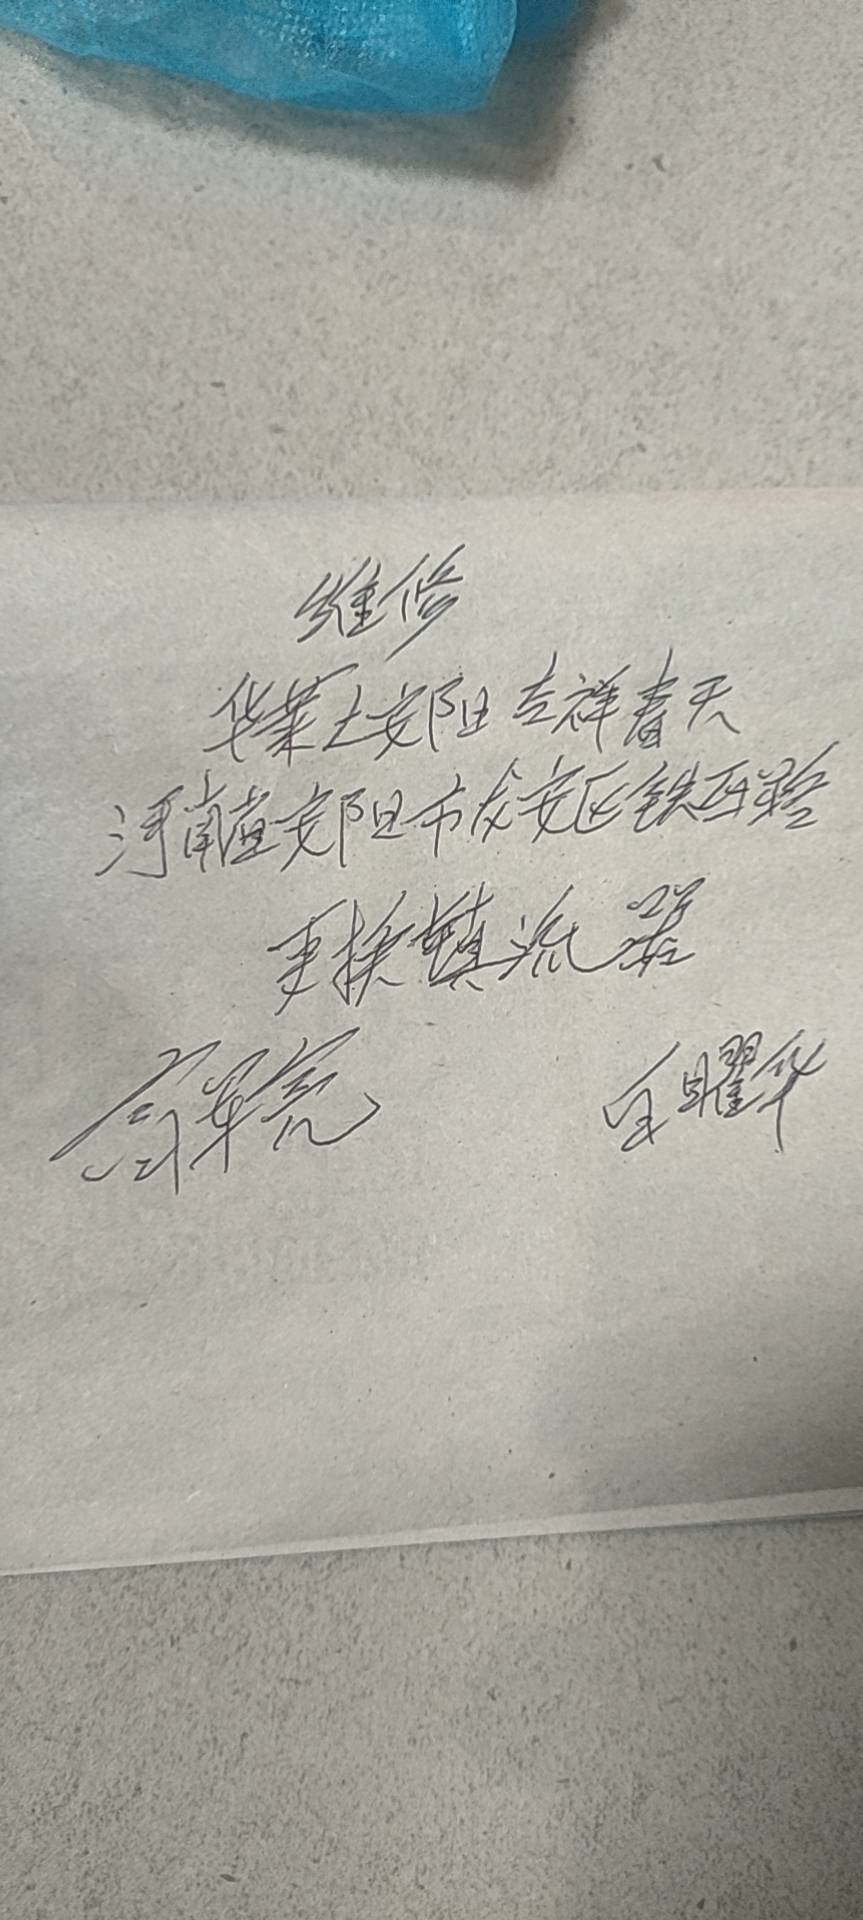 维修
华莱士安阳吉祥春天
河南省安阳市龙安区铁西路
更换镇流器
军亮 曜华